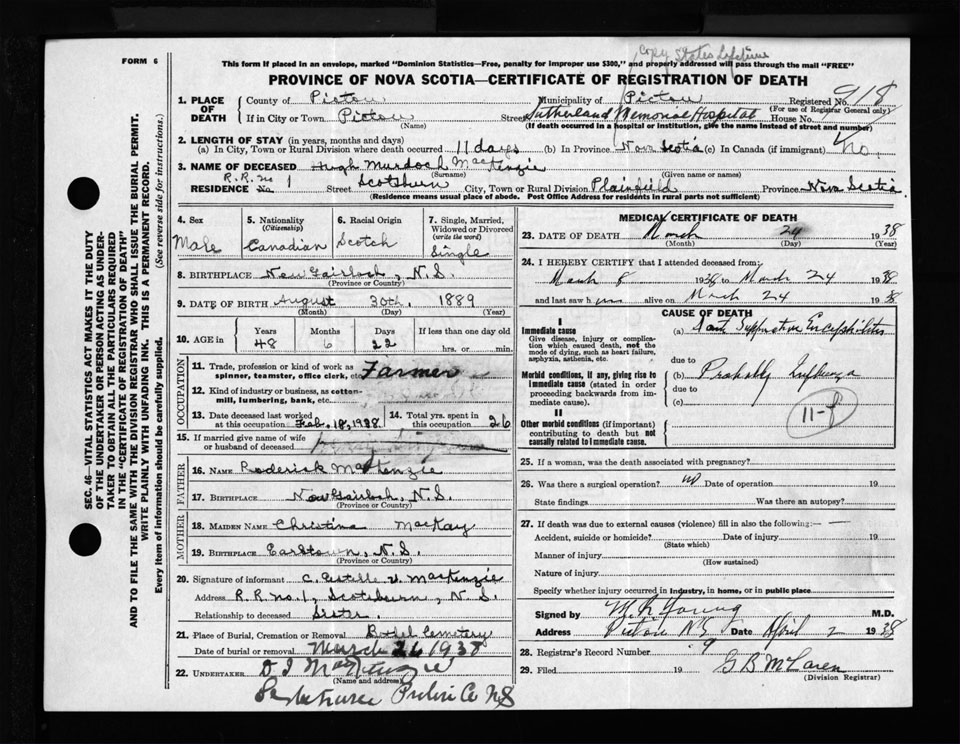 Copy States Lifetime
FORM 6
This form if placed in an envelope, marked "Dominion Statistics—Free, penalty for improper use $300," and properly addressed will pass through the mail "FREE"
PROVINCE OF NOVA SCOTIA—CERTIFICATE OF REGISTRATION OF DEATH
SEC. 46—VITAL STATISTICS ACT MAKES IT THE DUTY
OF THE UNDERTAKER OR PERSON ACTING AS UNDER-
TAKER TO OBTAIN ALL THE PARTICULARS REQUIRED
IN THE "CERTIFICATE OF REGISTRATION OF DEATH"
AND TO FILE THE SAME WITH THE DIVISION REGISTRAR WHO SHALL ISSUE THE BURIAL PERMIT.
WRITE PLAINLY WITH UNFADING INK. THIS IS A PERMANENT RECORD.
Every item of information should be carefully supplied. (See reverse side for instructions.)
1. PLACE OF DEATH County of Pictou Municipality of Pictou Registered No. 918
(For use of Registrar General only)
If in City or Town Pictou Street Sutherland Memorial Hospital House No.
(Name) (If death occurred in a hospital or institution, give the name instead of street and number)
2. LENGTH OF STAY (in years, months and days)
(a) In City, Town or Rural Division where death occurred 11 days (b) In Province Nova Scotia (c) In Canada (if immigrant) No.
3. NAME OF DECEASED Hugh Murdoch MacKenzie
(Surname) (Given name or names)
RESIDENCE No. R.R. no 1 Street Scotsburn City, Town or Rural Division Plainfield Province Nova Scotia
(Residence means usual place of abode. Post Office Address for residents in rural parts not sufficient)
4. Sex Male
5. Nationality (Citizenship) Canadian
6. Racial Origin Scotch
7. Single, Married, Widowed or Divorced (write the word) Single
8. BIRTHPLACE New Gairloch, N.S.
(Province or Country)
9. DATE OF BIRTH August 30th, 1889
(Month) (Day) (Year)
10. AGE in Years 48 Months 6 Days 22 If less than one day old hrs. or min.
OCCUPATION
11. Trade, profession or kind of work as spinner, teamster, office clerk, etc. Farmer
12. Kind of industry or business, as cotton-mill, lumbering, bank, etc.
13. Date deceased last worked at this occupation Feb. 18, 1938
14. Total yrs. spent in this occupation 26
15. If married give name of wife or husband of deceased
FATHER
16. NAME Roderick MacKenzie
17. BIRTHPLACE New Gairloch, N.S.
(Province or Country)
MOTHER
18. MAIDEN NAME Christina MacKay
19. BIRTHPLACE Earltown, N.S.
(Province or Country)
20. Signature of informant C. Estelle V. MacKenzie
Address R.R. no. 1, Scotsburn, N.S.
Relationship to deceased Sister
21. Place of Burial, Cremation or Removal Bethel Cemetery
Date of burial or removal March 26 1938
22. UNDERTAKER D J MacKenzie
(Name and address)
Pictou Co NS
MEDICAL CERTIFICATE OF DEATH
23. DATE OF DEATH March 24 1938
(Month) (Day) (Year)
24. I HEREBY CERTIFY that I attended deceased from:
March 8 1938 to March 24 1938
and last saw him alive on March 24 1938
CAUSE OF DEATH
I
Immediate cause
Give disease, injury or complication which caused death, not the mode of dying, such as heart failure, asphyxia, asthenia, etc.
(a) Acute Suppurative Encephalitis
due to
Morbid conditions, if any, giving rise to immediate cause (stated in order proceeding backwards from immediate cause).
(b) Probably Influenza
due to
(c)
11-f
II
Other morbid conditions (if important) contributing to death but not causally related to immediate cause.
25. If a woman, was the death associated with pregnancy?
26. Was there a surgical operation? no Date of operation 19
State findings Was there an autopsy?
27. If death was due to external causes (violence) fill in also the following:—
Accident, suicide or homicide? Date of injury 19
(State which)
Manner of injury
(How sustained)
Nature of injury
Specify whether injury occurred in industry, in home, or in public place
Signed by M R Young M.D.
Address Pictou N S Date April 2 1938
28. Registrar's Record Number 9
29. Filed 19 G B McLaren
(Division Registrar)